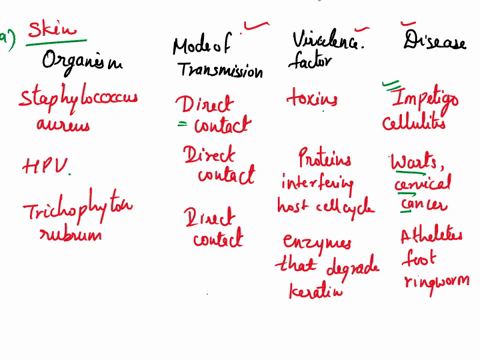 a) Skin
Organism Mode of Transmission Virulence factor Disease
Staphylococcus aureus Direct contact toxins Impetigo cellulites
HPV. Direct contact Proteins interfering host cell cycle Warts, cervical cancer
Trichophyton rubrum Direct contact enzymes that degrade keratin Atheletes foot ringworm